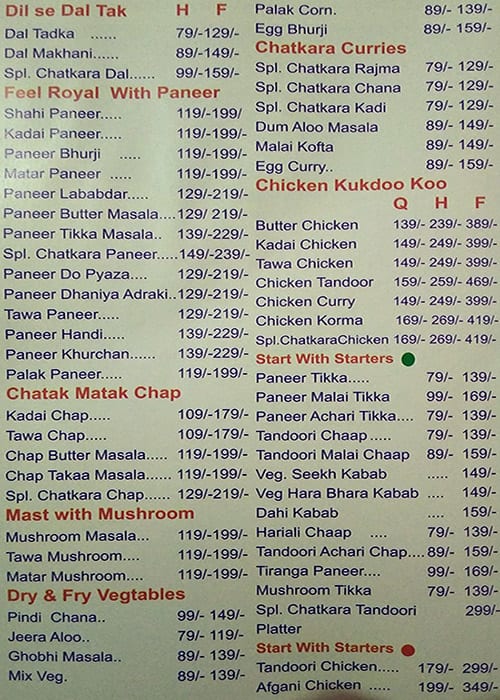 Dil se Dal Tak H F
Dal Tadka ...... 79/-129/-
Dal Makhani...... 89/-149/-
Spl. Chatkara Dal...... 99/-159/-
Feel Royal With Paneer
Shahi Paneer..... 119/-199/
Kadai Paneer..... 119/-199/-
Paneer Bhurji ..... 119/-199/-
Matar Paneer ..... 119/-199/-
Paneer Lababdar..... 129/-219/-
Paneer Butter Masala.... 129/ 219/-
Paneer Tikka Masala.. 139/-229/-
Spl. Chatkara Paneer.....149/-239/-
Paneer Do Pyaza.... 129/-219/-
Paneer Dhaniya Adraki..129/-219/-
Tawa Paneer..... 129/-219/-
Paneer Handi..... 139/-229/-
Paneer Khurchan...... 139/-229/-
Palak Paneer..... 119/-199/-
Chatak Matak Chap
Kadai Chap..... 109/-179/-
Tawa Chap..... 109/-179/-
Chap Butter Masala..... 119/-199/-
Chap Takaa Masala...... 119/-199/-
Spl. Chatkara Chap...... 129/-219/-
Mast with Mushroom
Mushroom Masala... 119/-199/-
Tawa Mushroom.... 119/-199/-
Matar Mushroom.... 119/-199/-
Dry & Fry Vegtables
Pindi Chana.. 99/- 149/-
Jeera Aloo.. 79/- 119/-
Ghobhi Masala.. 89/- 139/-
Mix Veg. 89/- 139/-
Palak Corn. 89/- 139/-
Egg Bhurji 89/- 159/-
Chatkara Curries
Spl. Chatkara Rajma 79/- 129/-
Spl. Chatkara Chana 79/- 129/-
Spl. Chatkara Kadi 79/- 129/-
Dum Aloo Masala 89/- 149/-
Malai Kofta 89/- 149/-
Egg Curry.. 89/- 159/-
Chicken Kukdoo Koo
Q H F
Butter Chicken 139/- 239/- 389/-
Kadai Chicken 149/- 249/- 399/-
Tawa Chicken 149/- 249/- 399/-
Chicken Tandoor 159/- 259/- 469/-
Chicken Curry 149/- 249/- 399/-
Chicken Korma 169/- 269/- 419/-
Spl.ChatkaraChicken 169/- 269/- 419/-
Start With Starters
Paneer Tikka..... 79/- 139/-
Paneer Malai Tikka 99/- 169/-
Paneer Achari Tikka.... 79/- 139/-
Tandoori Chaap ..... 79/- 139/-
Tandoori Malai Chaap 89/- 159/-
Veg. Seekh Kabab ..... 149/-
Veg Hara Bhara Kabab .... 149/-
Dahi Kabab .... 159/-
Hariali Chaap .... 79/- 139/-
Tandoori Achari Chap.... 89/- 159/-
Tiranga Paneer.... 99/- 169/-
Mushroom Tikka 79/- 139/-
Spl. Chatkara Tandoori 299/-
Platter
Start With Starters
Tandoori Chicken..... 179/- 299/-
Afgani Chicken ..... 199/- 349/-